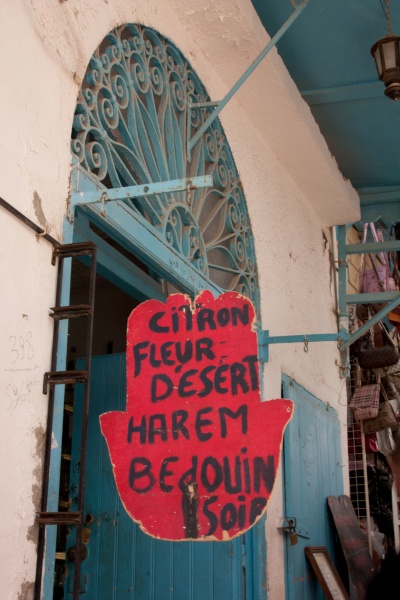 CITRON
FLEUR-
D'ESÉRT
HAREM
BEDOUIN
SOIR